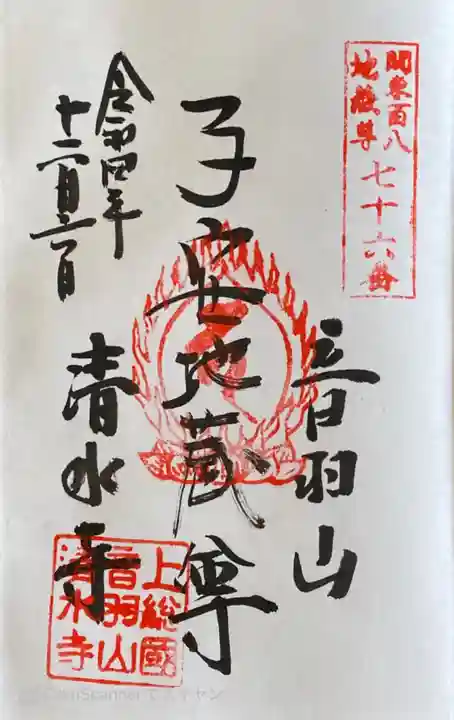 関東百八
地蔵尊
七十六番
音羽山
子安地蔵尊
令和四年
十二月三日
清水寺
上総國
音羽山
清水寺